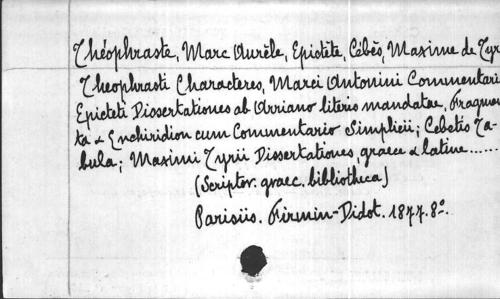 Théophraste, Marc Aurèle, Epictète, Cébès, Maxime de Tyr
Theophrasti Characteres, Marci Antonini Commentari
Epicteti Dissertationes ab Arriano literis mandatae, Fragmen
ta & Enchiridion cum Commentario Simplicii; Cebetis Ta-
bula; Maximi Tyrii Dissertationes, graece & latine......
(Scriptor. graec. bibliotheca)
Parisiis. Firmin-Didot. 1877. 8º.